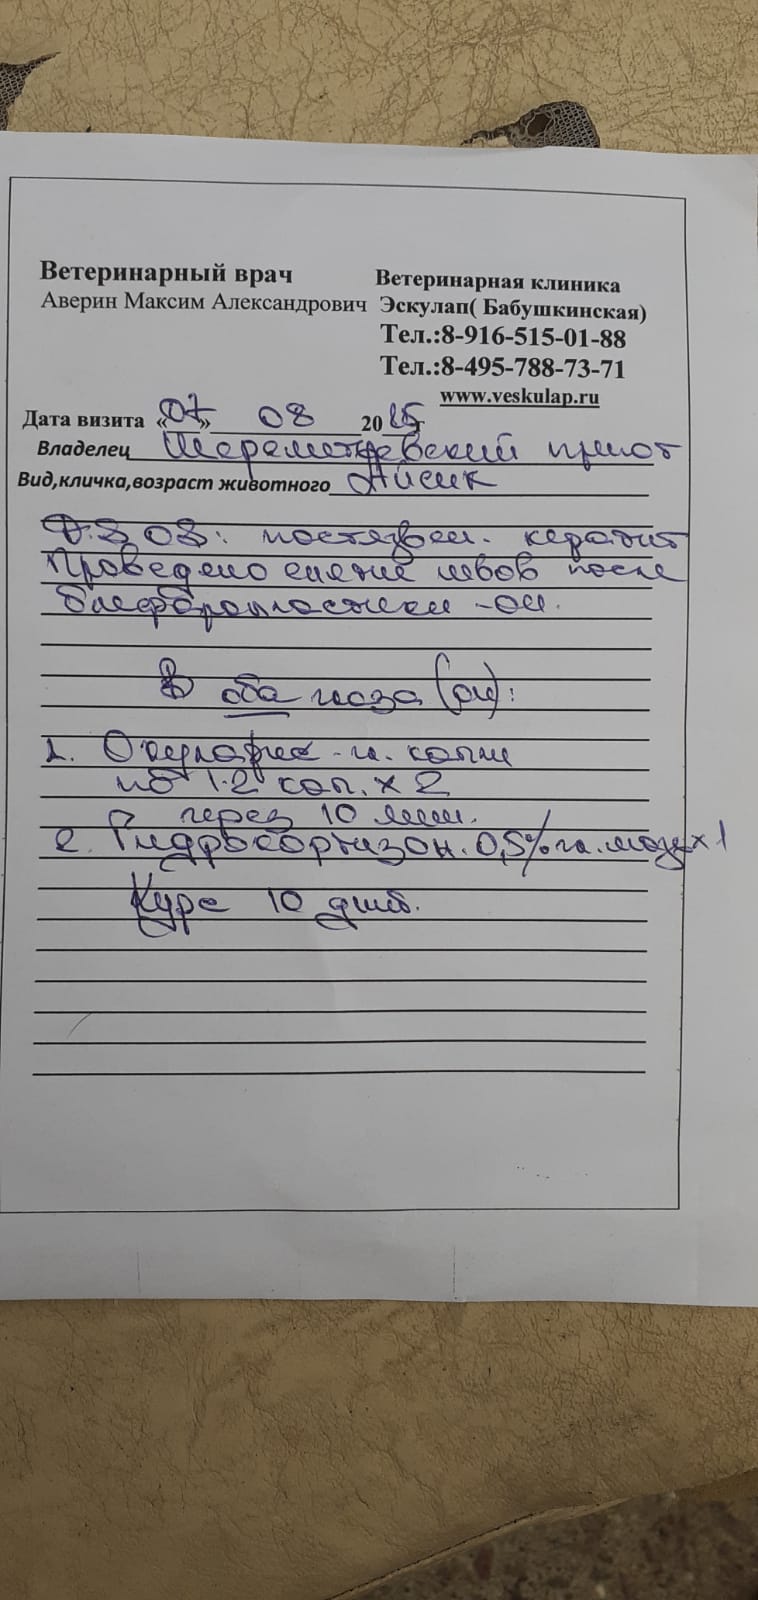 Ветеринарный врач
Аверин Максим Александрович
Ветеринарная клиника
Эскулап( Бабушкинская)
Тел.:8-916-515-01-88
Тел.:8-495-788-73-71
www.veskulap.ru
Дата визита «07» 08 2025г
Владелец Шереметьевский приют
Вид,кличка,возраст животного Айсик
постязвен. кератит
Проведено снятие швов после
блефаропластики -ои.
В оба глаза (ои):
1. Окулафес -гл. капли
по 1-2 кап. х 2
через 10 мин.
2. Гидрокортизон. 0,5% гл. мазь х 1
Курс 10 дней.